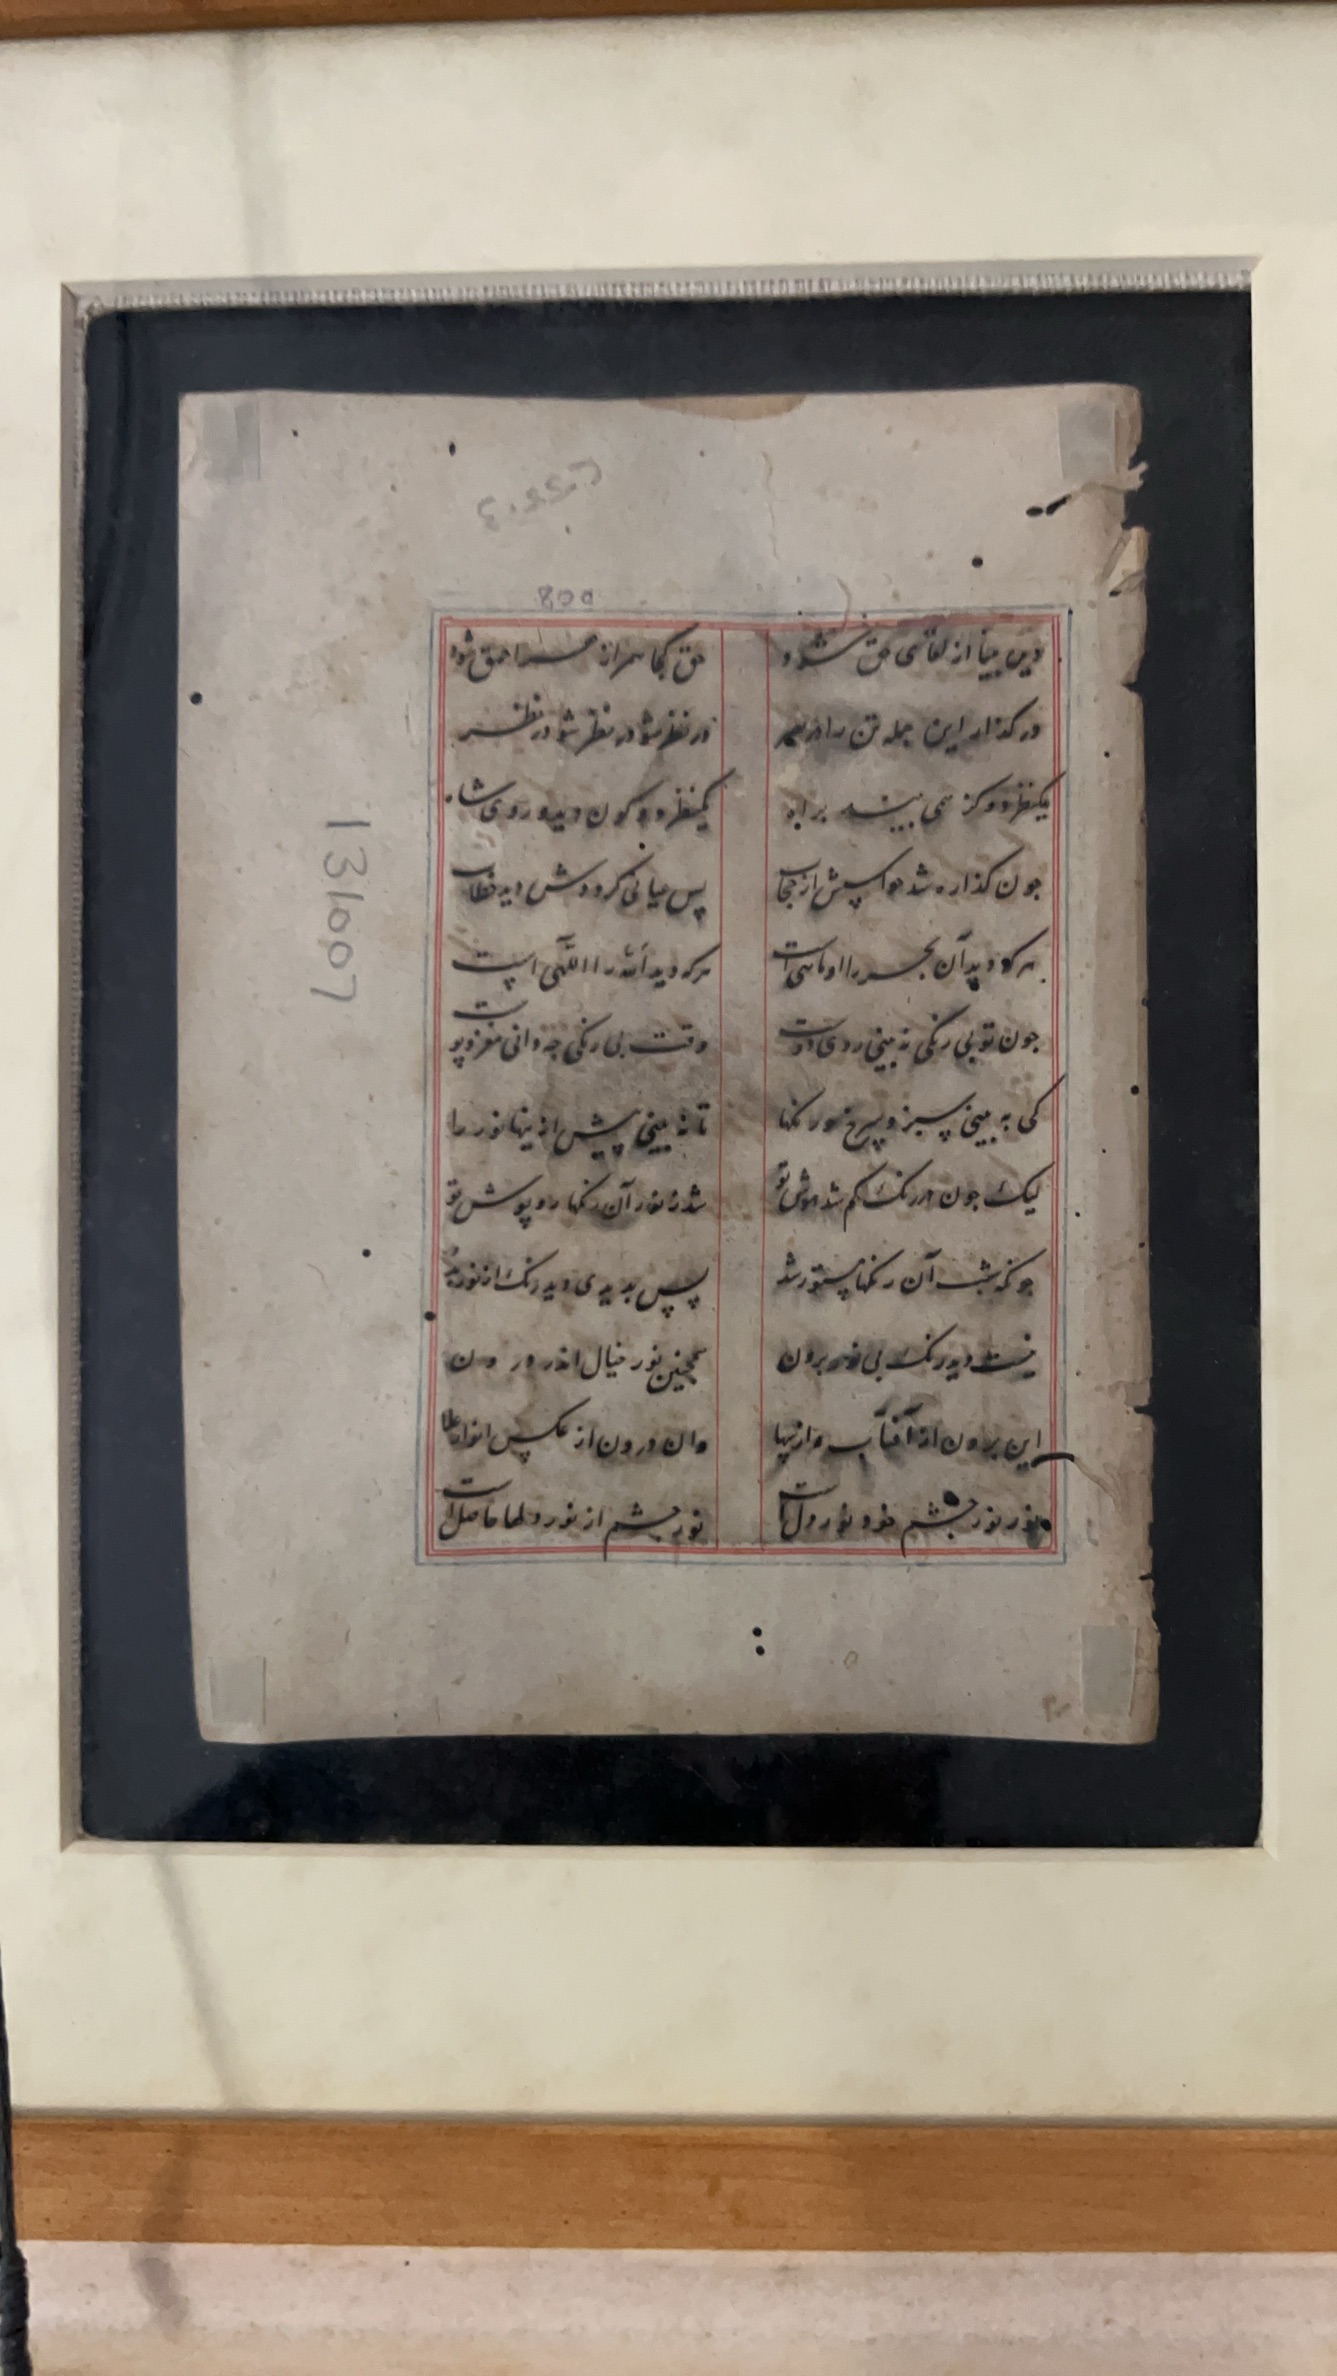 دین بینا از لقای حق شود حق کجا همراز هر احمق شود
در گذار این جمله تن را در بصر در نظر شو در نظر شو در نظر
یکنظر دو گز همی بیند براه یکنظر دو کون دید و روی شاه
چون گذاره شد حواسش از حجاب پس عیانی گرددش دید خطاب
هر که دید آن بحر را او ماهی است هر که دید الله را اللهی است
چون تو بی رنگی نه بینی روی دوست وقت بی رنگی چه دانی مغز و پوست
کی به بینی سبز و سرخ و رنگها تا نه بینی پیش از ینها نور را
لیک چون در رنگ گم شد هوش تو شد ز نور آن رنگها روپوش تو
چونکه شب آن رنگها مستور شد پس بدیدی دید رنگ از نور بد
نیست دید رنگ بی نور برون همچنین نور خیال اندرون
این برون از آفتاب و از سها وان درون از عکس انوار علا
نور نور چشم خود نور دل است نور چشم از نور دلها حاصل است
131007